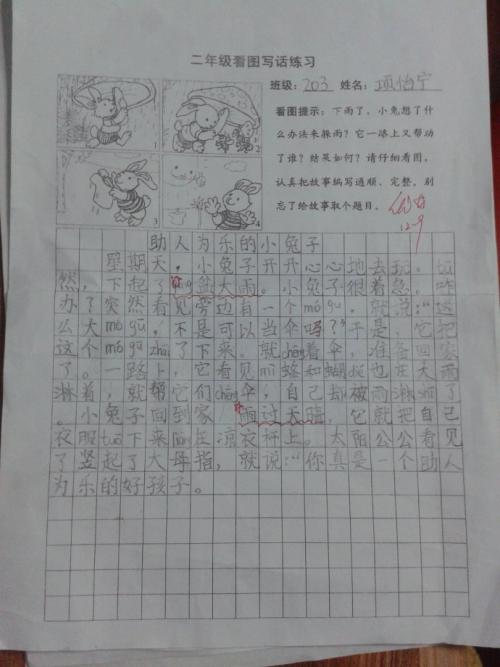 二年级看图写话练习
班级：203 姓名：项怡宁
看图提示：下雨了，小兔想了什
么办法来躲雨？它一路上又帮助
了谁？结果如何？请仔细看图，
认真把故事编写通顺、完整，别
忘了给故事取个题目。
12-9
1
2
3
4
助人为乐的小兔子
星期天，小兔子开开心心地去玩。
然，下起了盆大雨。小兔子很着急，咋
办了突然看见旁边有一个mó gu，就说：“这
么大mó gū，不是可以当伞吗？”于是，它把
这个mó gū zhāi了下来。就chēng着伞，准备回家
了。一路上，它看见mǐ蜂如蝴蝶也在大雨
淋着，就帮它们chēng伞，自己却被雨淋shī了
。小兔子回到家雨过天晴，它就把自己
衣服tuō下来liàng在凉衣杆上。太阳公公看见
了竖起了大母指，就说：“你真是一个助人
为乐的好孩子。